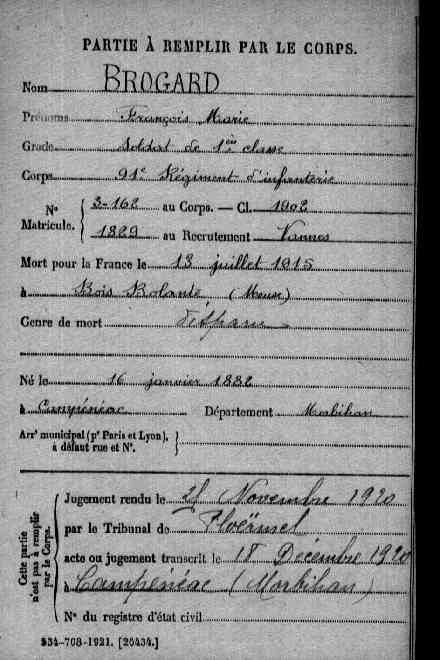 PARTIE À REMPLIR PAR LE CORPS.
Nom BROGARD
Prénoms François Marie
Grade Soldat de 1ère classe
Corps 91e Régiment d'infanterie
N° Matricule. 3-162 au Corps. — Cl. 1902
1829 au Recrutement Vannes
Mort pour la France le 13 juillet 1915
à Bois Bolante, (Meuse)
Genre de mort Disparu
Né le 16 janvier 1882
à Campénéac Département Morbihan
Arrt municipal (pr Paris et Lyon),
à défaut rue et N°.
Cette partie n'est pas à remplir par le Corps.
Jugement rendu le Novembre 1920
par le Tribunal de Ploërmel
acte ou jugement transcrit le 18 Décembre 1920
à Campénéac (Morbihan)
N° du registre d'état civil
534-708-1921. [26434.]